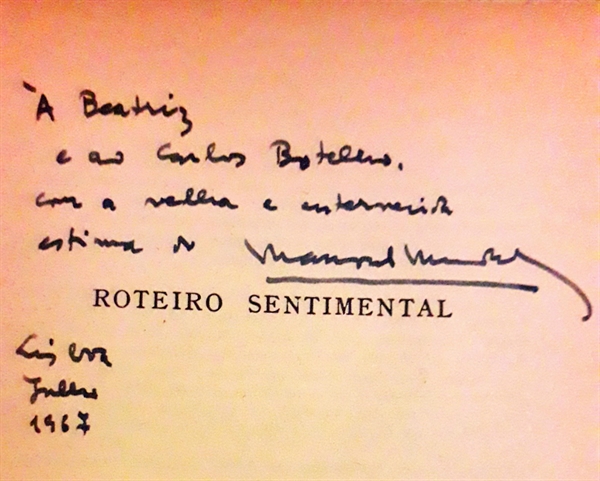 À Beatriz
e ao Carlos Botelho,
com a velha e enternecida
estima do Manuel Mendes
ROTEIRO SENTIMENTAL
Lisboa
Julho
1967